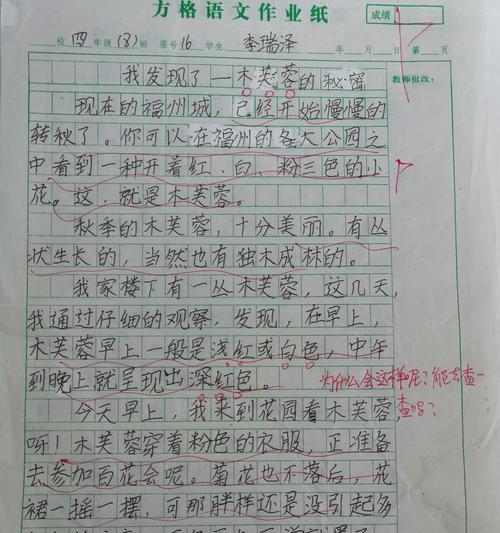 方格语文作业纸
成绩
校四年级(8)班 座号16 学生 李瑞泽 年 月 日 第 页
教师批改：
我发现了一木芙蓉的秘密
现在的福州城，已经开始慢慢的
转秋了。你可以在福州的各大公园之
中看到一种开着红、白、粉三色的小
花。这，就是木芙蓉。
秋季的木芙蓉，十分美丽。有丛
状生长的，当然也有独木成林的。
我家楼下有一丛木芙蓉，这几天，
我通过仔细的观察，发现，在早上，
木芙蓉早上一般是浅红或白色，中午
到晚上就呈现出深红色。
为什么会这样呢？能去查一
查吗？
今天早上，我来到花园看木芙蓉，
呀！木芙蓉穿着粉色的衣服，正准备
去参加百花会呢。菊花也不落后，花
裙一摇一摆，可那胖样还是没引起多